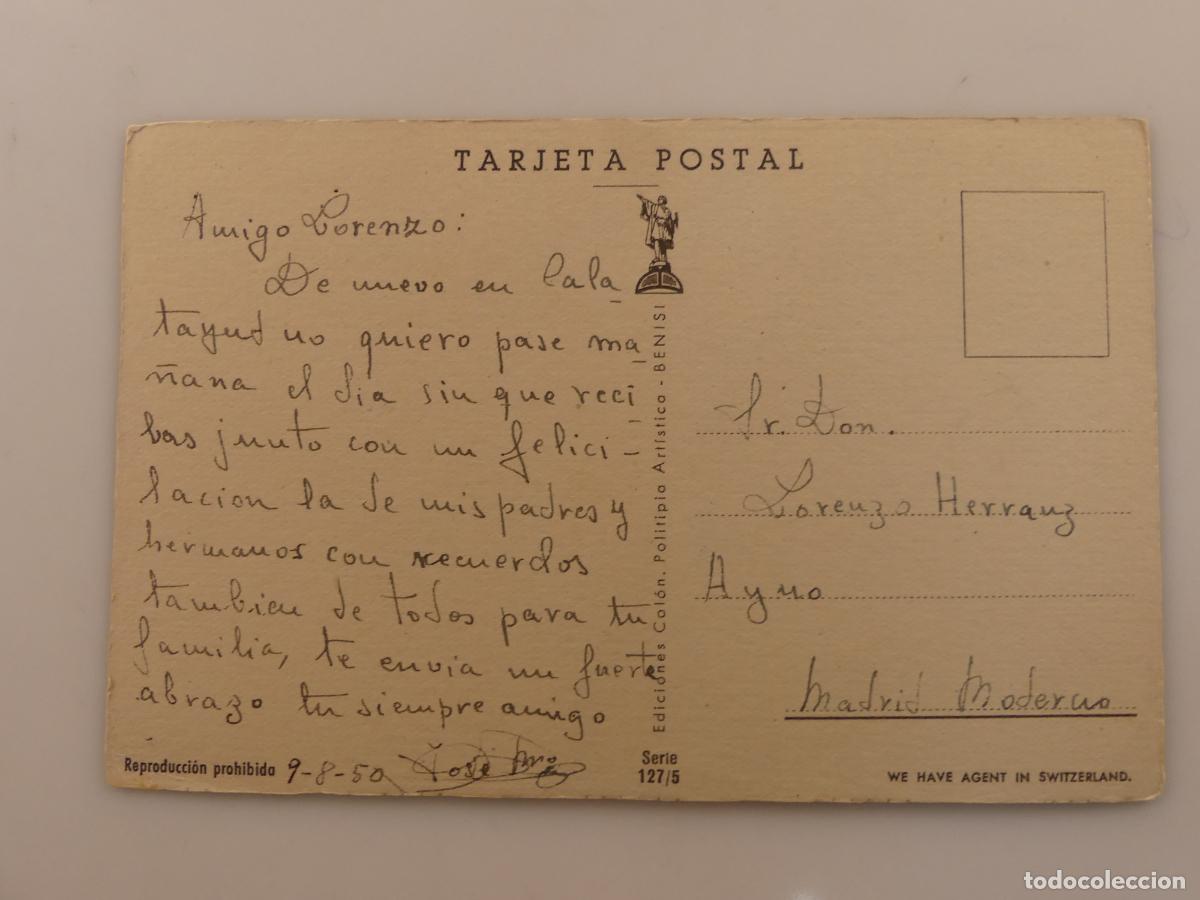 TARJETA POSTAL
Amigo Lorenzo:
De nuevo en Cala_
tayud no quiero pase ma_
ñana el dia sin que reci_
bas junto con un felici_
tacion la de mis padres y
hermanos con recuerdos
tambien de todos para tu
familia, te envia un fuerte
abrazo tu siempre amigo
9-8-50 José Mª
Reproducción prohibida
Ediciones Colón. Politipia Artística - BENISI
Serie
127/5
Sr. Don.
Lorenzo Herranz
Ayuo
Madrid Moderno
WE HAVE AGENT IN SWITZERLAND.
todocoleccion